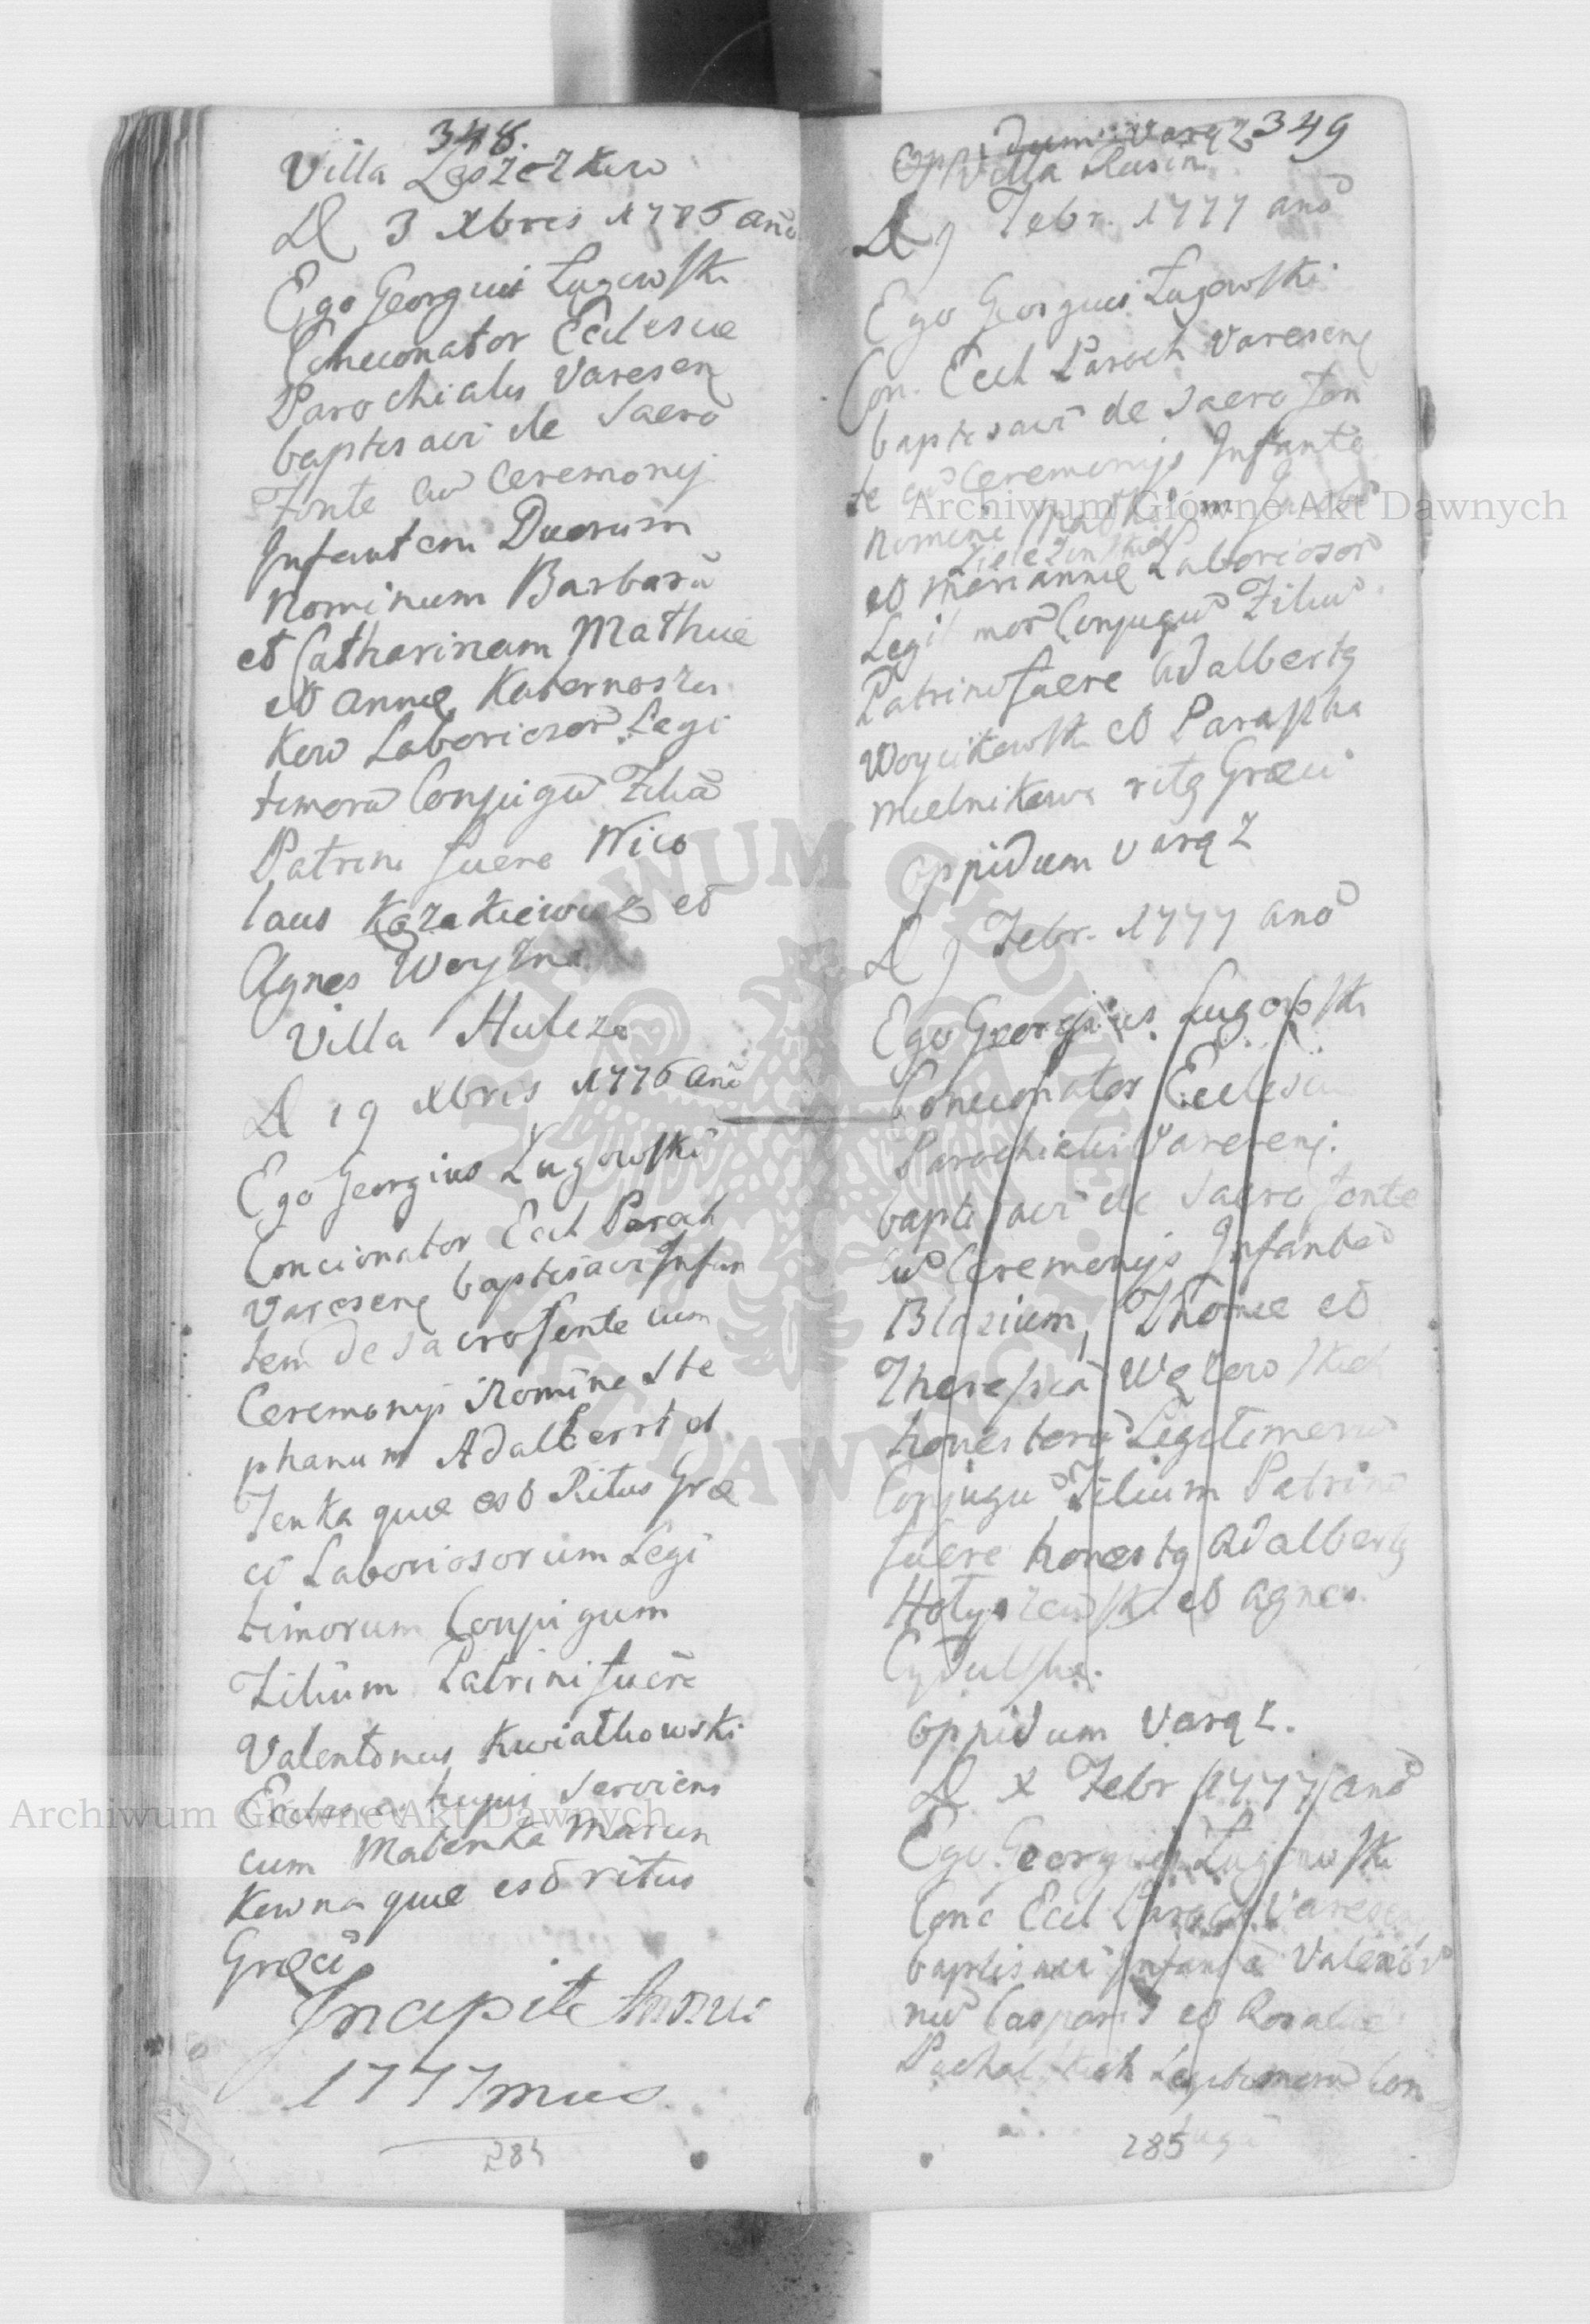 348.
Villa Leszczkow
D 3 Xbris 1776 anō
Ego Georgius Ługowski
Concionator Ecclesiæ
Parochialis Varesen
baptisavi de Sacro
Fonte cū Ceremonij
Infantem Duorum
Nominum Barbarā
et Catharinam Mathiæ
et Annæ
kow Laboriosor Legi
timorū Conjugū Filiā
Patrini fuere Nico
laus Kozakiewicz et
Agnes Woyzna
Villa Hulcze
D 19 Xbris 1776 anō
Ego Georgius Ługowski
Concionator Eccl Paroch
Varesenę baptisavi Infan
tem de sacro fonte cum
Ceremonijs Nomine Ste
phanum Adalberti et
Fenka quæ est Ritus Græ
ci Laboriosorum Legi
timorum Conjugum
Filium Patrini fuere
Valentinus Kwiatkowski
Ecclesiæ hujus Serviens
cum Matenka Marun
kowna quæ est ritus
Græci
Incipite Annus
1777mus
284
Oppidum Varąz 349
Villa Rusin
D 9 Febr. 1777 anō
Ego Georgius Ługowski
Con. Eccl Paroch Varesenę
baptisavi de Sacro Fon
te cū Ceremonijs Infantē
Nomine Mathiam
et Mariannæ Laboriosor
Legitimor Conjugū Filiū
Patrini fuere Adalbertg
Woycikowski et Paraska
Mielnikowa ritg Græci
Oppidum Varąz
D 9 Febr. 1777 anō
Ego Georgius Ługowski
Concionator Ecclesiæ
Parochialis Varesenę.
baptisavi de Sacro fonte
cū Ceremonijs Infantē
Blasium, Thomæ et
Theresiæ
honestorū Legitimorū
Conjugū Filium Patrini
fuere honestg Adalbertg
et Agnes

Oppidum Varąz.
D X Febr 1777 anō
Ego Georgius Ługowski
Conc Eccl Paroch Varesenę
baptisavi Infantē Valenti
nū Casparis et Rosaliæ
Legitimorū Con
285
Archiwum Główne Akt Dawnych
Archiwum Główne Akt Dawnych
ARCHIWUM GŁÓWNE AKT DAWNYCH